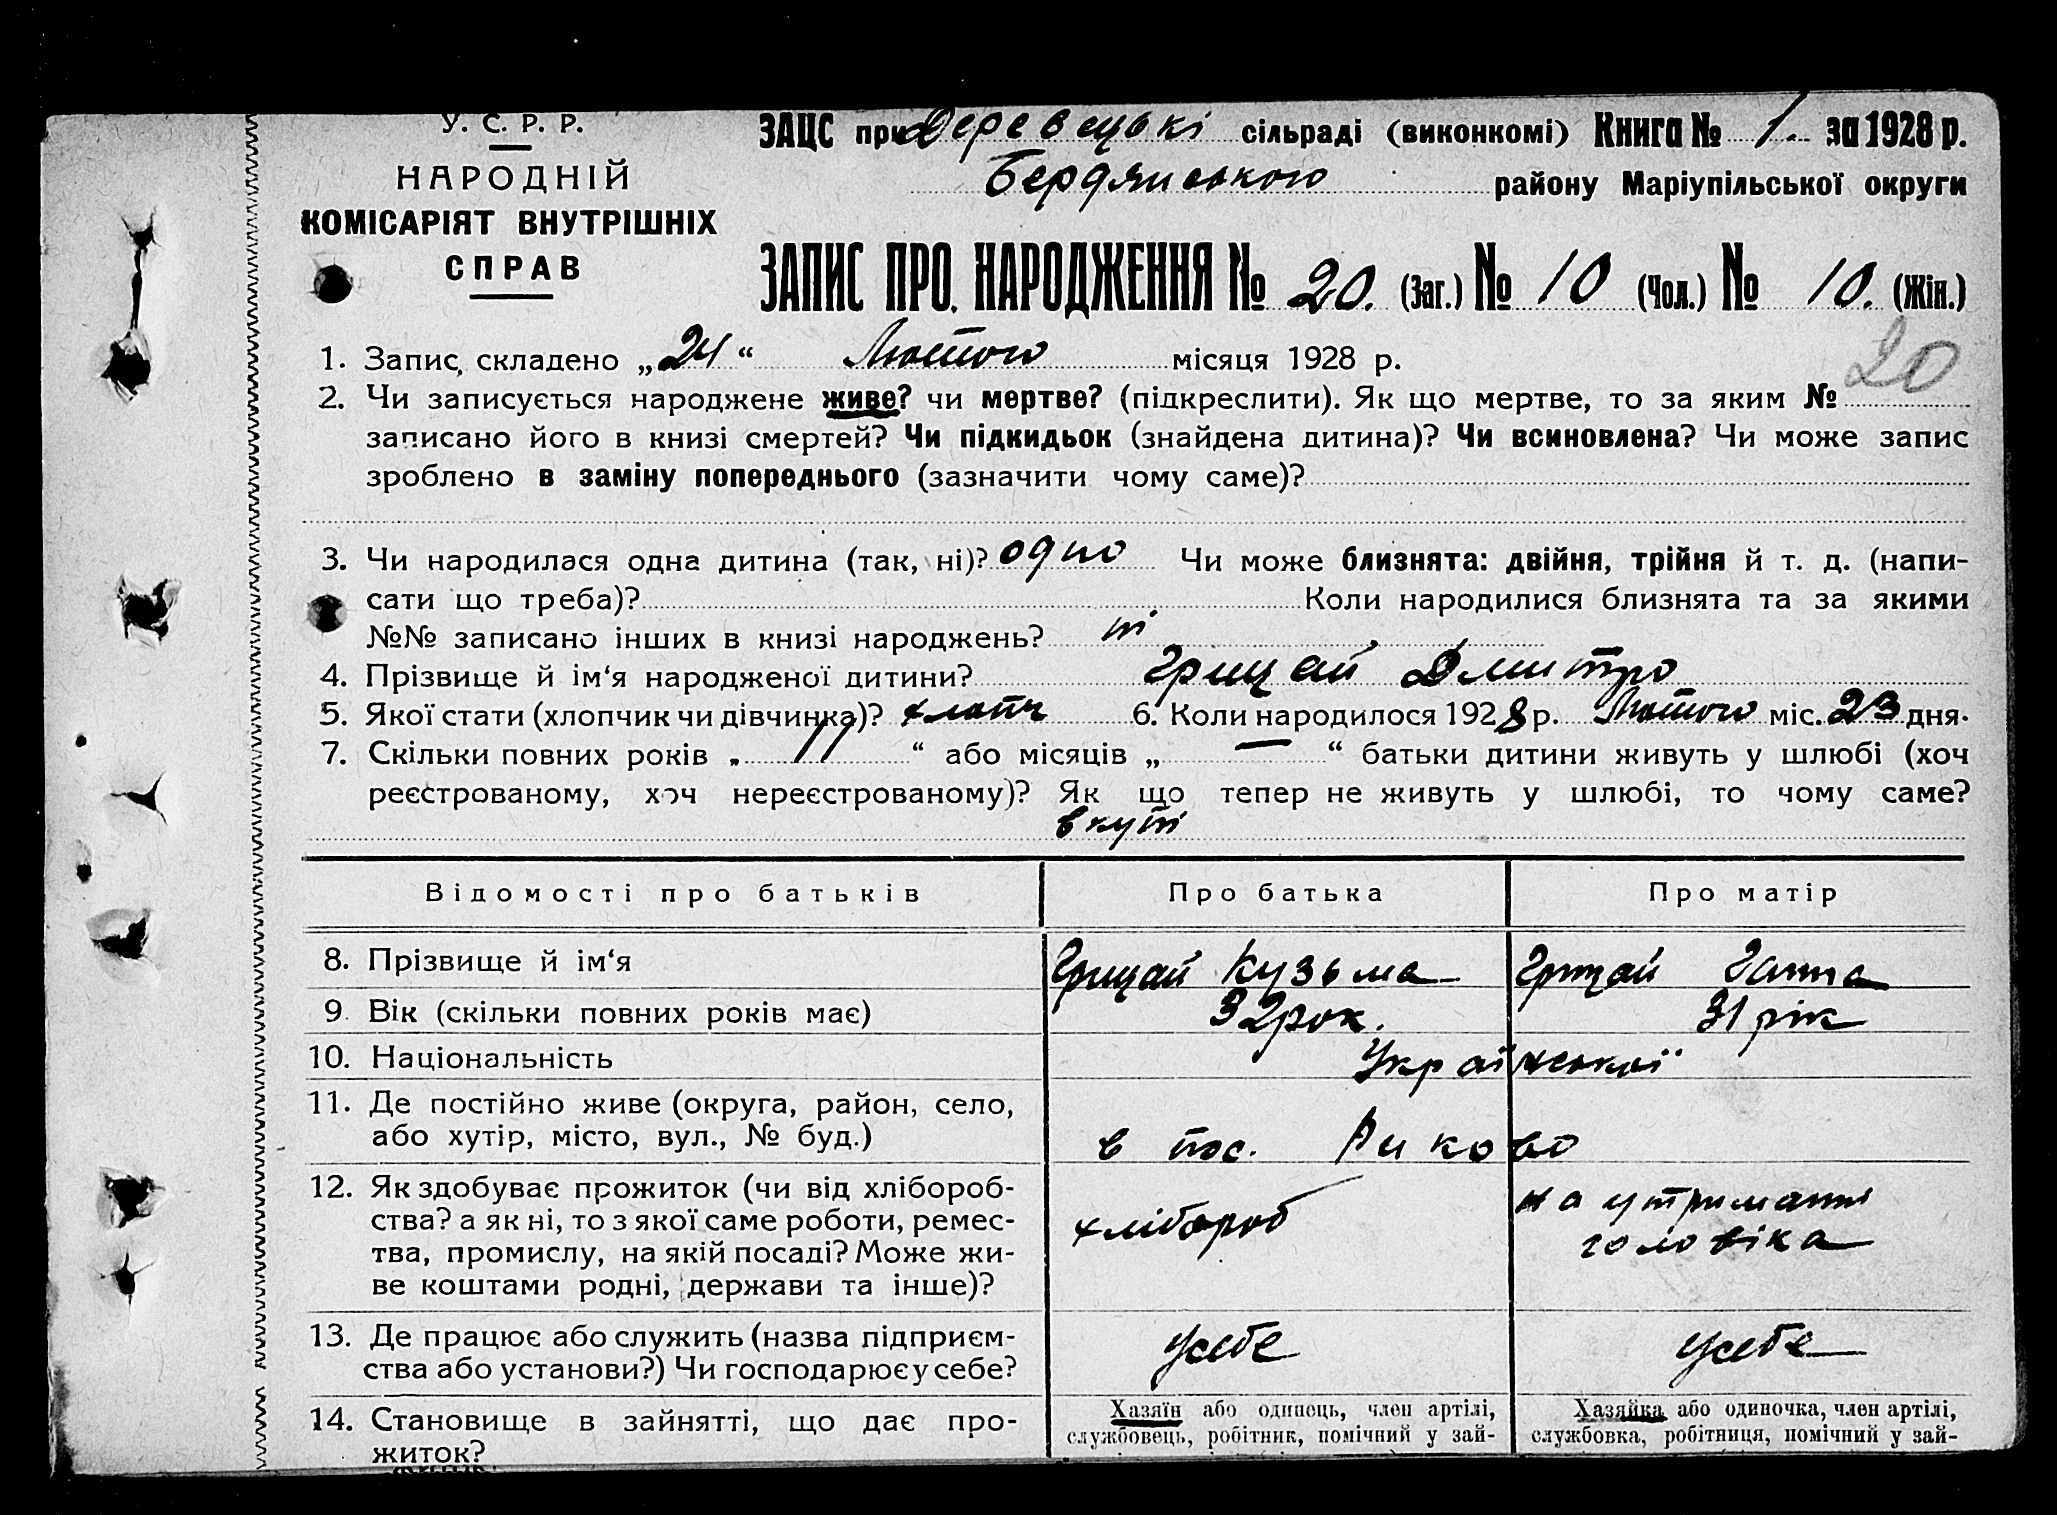 У. С. Р. Р.
НАРОДНІЙ
КОМІСАРІЯТ ВНУТРІШНІХ
СПРАВ
ЗАЦС при Деревецькі сільраді (виконкомі) Книга № 1. за 1928 р.
Бердянського району Маріупільської округи
ЗАПИС ПРО НАРОДЖЕННЯ № 20. (Заг.) № 10 (Чол.) № 10. (Жін.)
20
1. Запис складено „24“ Лютого місяця 1928 р.
2. Чи записується народжене живе? чи мертве? (підкреслити). Як що мертве, то за яким №
записано його в книзі смертей? Чи підкидьок (знайдена дитина)? Чи всиновлена? Чи може запис
зроблено в заміну попереднього (зазначити чому саме)?
3. Чи народилася одна дитина (так, ні)? одно Чи може близнята: двійня, трійня й т. д. (напи-
сати що треба)? Коли народилися близнята та за якими
№№ записано інших в книзі народжень? ні
4. Прізвище й ім‘я народженої дитини? Грицай Дмитро
5. Якої стати (хлопчик чи дівчинка)? хлопч 6. Коли народилося 1928 р. Лютого міс. 23 дня.
7. Скільки повних років „ 11 “ або місяців „ — “ батьки дитини живуть у шлюбі (хоч
реєстрованому, хоч нереєстрованому)? Як що тепер не живуть у шлюбі, то чому саме?
вкупі
Відомості про батьків Про батька Про матір
8. Прізвище й ім‘я Грицай Кузьма Грицай Ганна
9. Вік (скільки повних років має) 32 рок. 31 рік
10. Національність Української
11. Де постійно живе (округа, район, село,
або хутір, місто, вул., № буд.) в пос. Риково
12. Як здобуває прожиток (чи від хлібороб-
ства? а як ні, то з якої саме роботи, ремес-
тва, промислу, на якій посаді? Може жи-
ве коштами родні, держави та інше)?
хлібороб
на утриманні
головіка
13. Де працює або служить (назва підприєм-
ства або установи?) Чи господарює у себе?
усебе
усебе
14. Становище в зайнятті, що дає про-
житок?
Хазяїн або одинець, член артілі,
службовець, робітник, помічний у зай-
Хазяйка або одиночка, член артілі,
службовка, робітниця, помічний у зай-